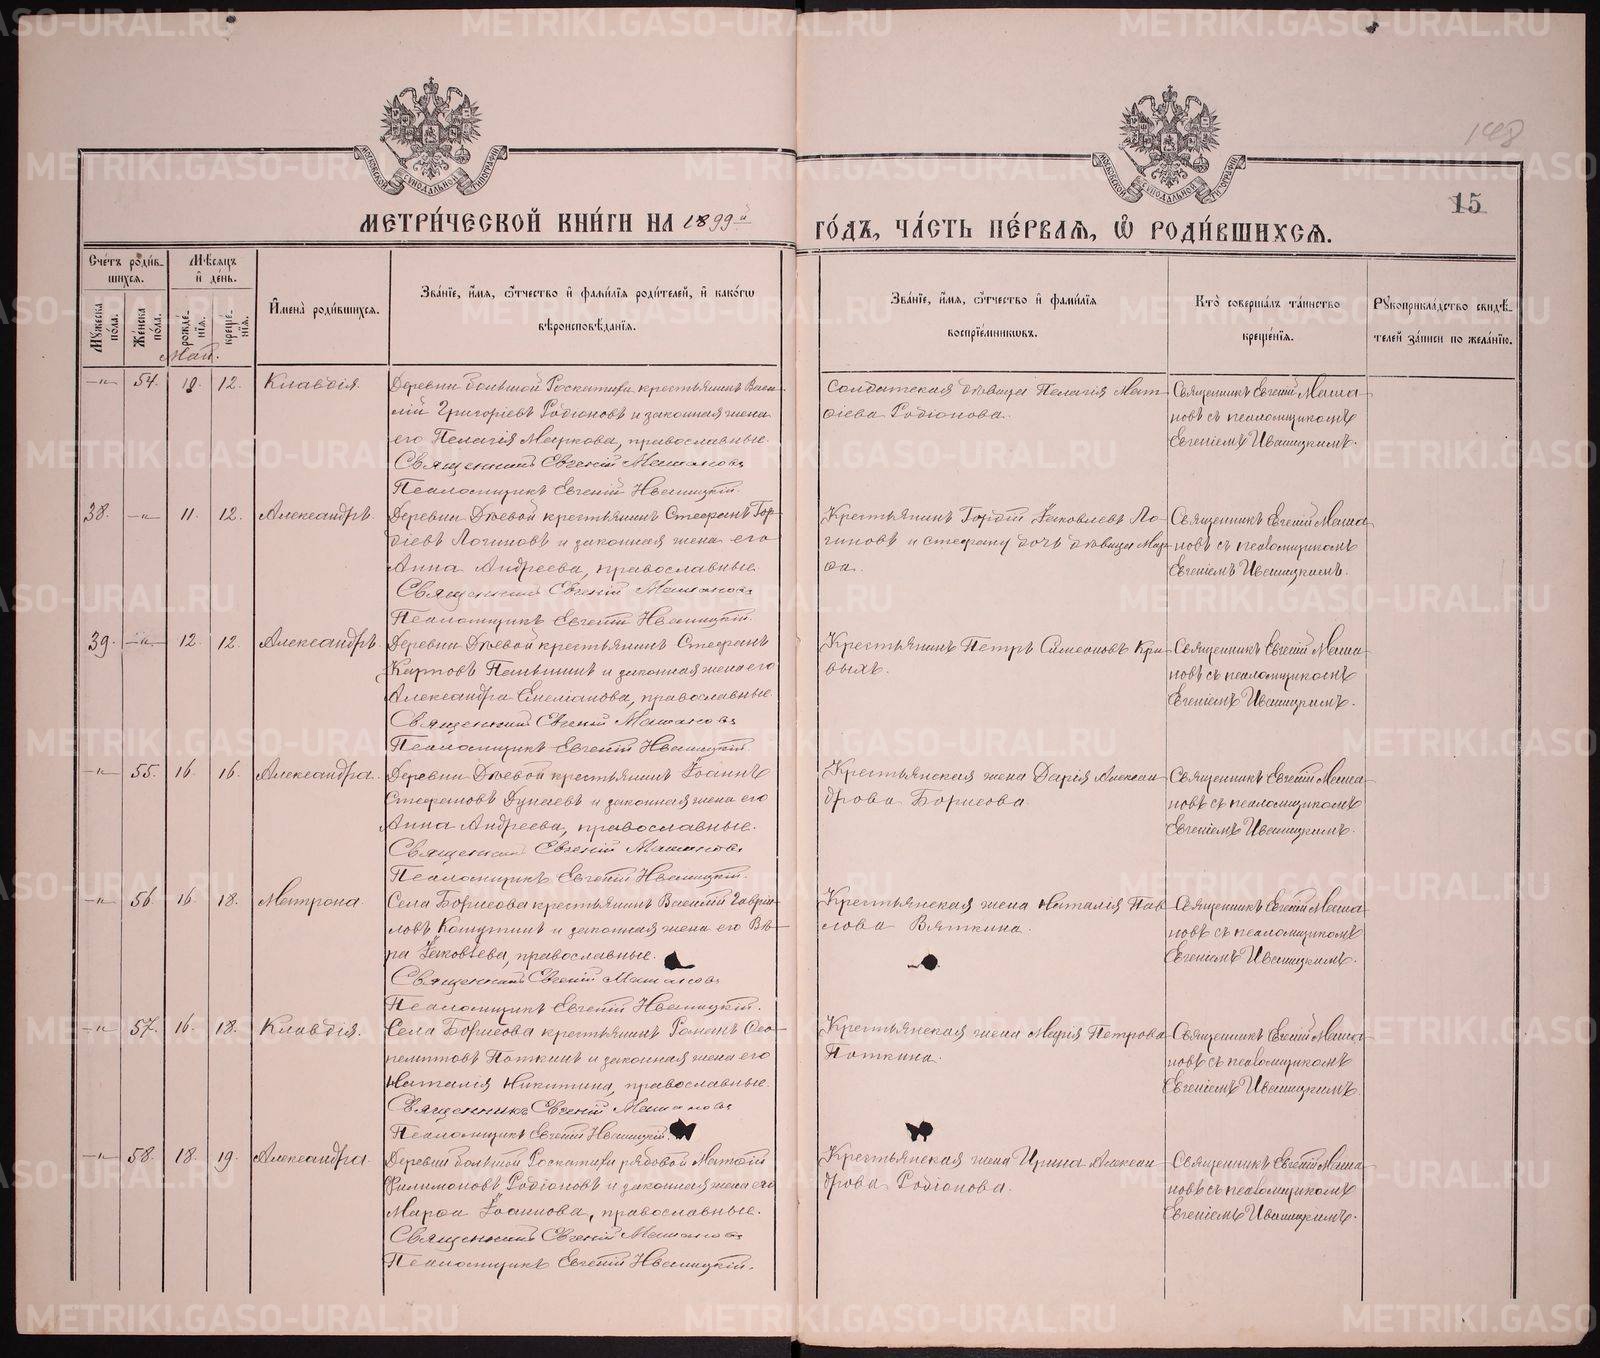 148
15
МОСКОВСКОЙ СѴНОДАЛЬНОЙ ТИПОГРАФІИ
МОСКОВСКОЙ СѴНОДАЛЬНОЙ ТИПОГРАФІИ
МЕТРИ́ЧЕСКОЙ КНИ́ГИ НА 1899й
ГО́ДЪ, ЧА́СТЬ ПЕ́РВАЯ, Ѽ РОДИ́ВШИХСЯ.
Сче́тъ роди́в-
шихся.
Мѣ́сяцъ
и҆ де́нь.
Мꙋ́жеска по́ла.
Же́нска по́ла.
рожде́-
нїя.
креще́-
нїя.
И҆мена̀ роди́вшихся.
Зва́нїе, и҆́мя, ѻ҆́тчество и҆ фами́лїя роди́телей, и҆ како́гѡ
вѣроисповѣ́данїя.
Зва́нїе, и҆́мя, ѻ҆́тчество и҆ фами́лїя
воспрїе́мникѡвъ.
Кто̀ соверша́лъ та́инство
креще́нїя.
Рꙋкоприкла́дство свидѣ́-
телей за́писи по жела́нїю.
Май.
—„— 54. 10. 12. Клавдія.
Деревни большой Роскатихи крестьянинъ Васи-
лій Григоріевъ Родіоновъ и законная жена
его Пелагія Маркова, православные.
Священникъ Евгеній Машановъ
Псаломщикъ Евгеній Ивашицкій.
Солдатская дѣвица Пелагія Мат-
ѳіева Родіонова.
Священникъ Евгеній Маша-
новъ съ псаломщикомъ
Евгеніемъ Ивашицкимъ.
38. —„— 11. 12. Александръ.
Деревни Дѣевой крестьянинъ Стефанъ Гор-
діевъ Логиновъ и законная жена его
Анна Андреева, православные.
Священникъ Евгеній Машановъ
Псаломщикъ Евгеній Ивашицкій.
Крестьянинъ Гордій Іаковлевъ Ло-
гиновъ и Стефану дочь дѣвица Мар-
ѳа.
Священникъ Евгеній Маша-
новъ съ псаломщикомъ
Евгеніемъ Ивашицкимъ.
39. —„— 12. 12. Александръ.
Деревни Дѣевой крестьянинъ Стефанъ
Карповъ Пеньшинъ и законная жена его
Александра Емеліанова, православные.
Священникъ Евгеній Машановъ
Псаломщикъ Евгеній Ивашицкій.
Крестьянинъ Петръ Симеоновъ Кри-
выхъ.
Священникъ Евгеній Маша-
новъ съ псаломщикомъ
Евгеніемъ Ивашицкимъ.
—„— 55. 16. 16. Александра.
Деревни Дѣевой крестьянинъ Іоаннъ
Стефановъ Дунаевъ и законная жена его
Анна Андреева, православные.
Священникъ Евгеній Машановъ
Псаломщикъ Евгеній Ивашицкій.
Крестьянская жена Дарія Алексан-
дрова Борисова.
Священникъ Евгеній Маша-
новъ съ псаломщикомъ
Евгеніемъ Ивашицкимъ.
—„— 56. 16. 18. Матрона.
Села Борисова крестьянинъ Василій Гаврі-
ловъ Кошутинъ и законная жена его Вѣ-
ра Іаковлева, православные.
Священникъ Евгеній Машановъ
Псаломщикъ Евгеній Ивашицкій.
Крестьянская жена Наталія Пав-
лова Вяткина.
Священникъ Евгеній Маша-
новъ съ псаломщикомъ
Евгеніемъ Ивашицкимъ.
—„— 57. 16. 18. Клавдія.
Села Борисова крестьянинъ Романъ Ѳео-
пемптовъ Поткинъ и законная жена его
Наталія Никитина, православные.
Священникъ Евгеній Машановъ
Псаломщикъ Евгеній Ивашицкій.
Крестьянская жена Марія Петрова
Поткина.
Священникъ Евгеній Маша-
новъ съ псаломщикомъ
Евгеніемъ Ивашицкимъ.
—„— 58. 18. 19. Александра.
Деревни большой Роскатихи рядовой Матѳій
Филимоновъ Родіоновъ и законная жена его
Марѳа Іоаннова, православные.
Священникъ Евгеній Машановъ
Псаломщикъ Евгеній Ивашицкій.
Крестьянская жена Ирина Алексан-
дрова Родіонова.
Священникъ Евгеній Маша-
новъ съ псаломщикомъ
Евгеніемъ Ивашицкимъ.
METRIKI.GASO-URAL.RU